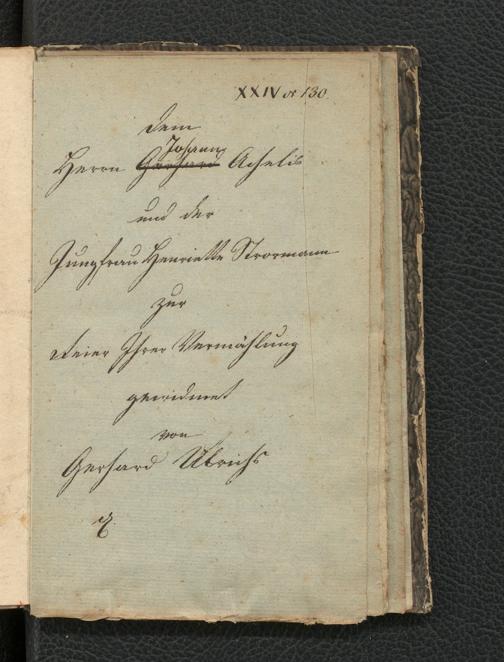 XXIV c 130.
Dem
Johann
Herrn Gerhard Achelis
und der
Jungfrau Henriette Strormann
zur
Feier Ihrer Vermählung
gewidmet
von
Gerhard Ulrichs